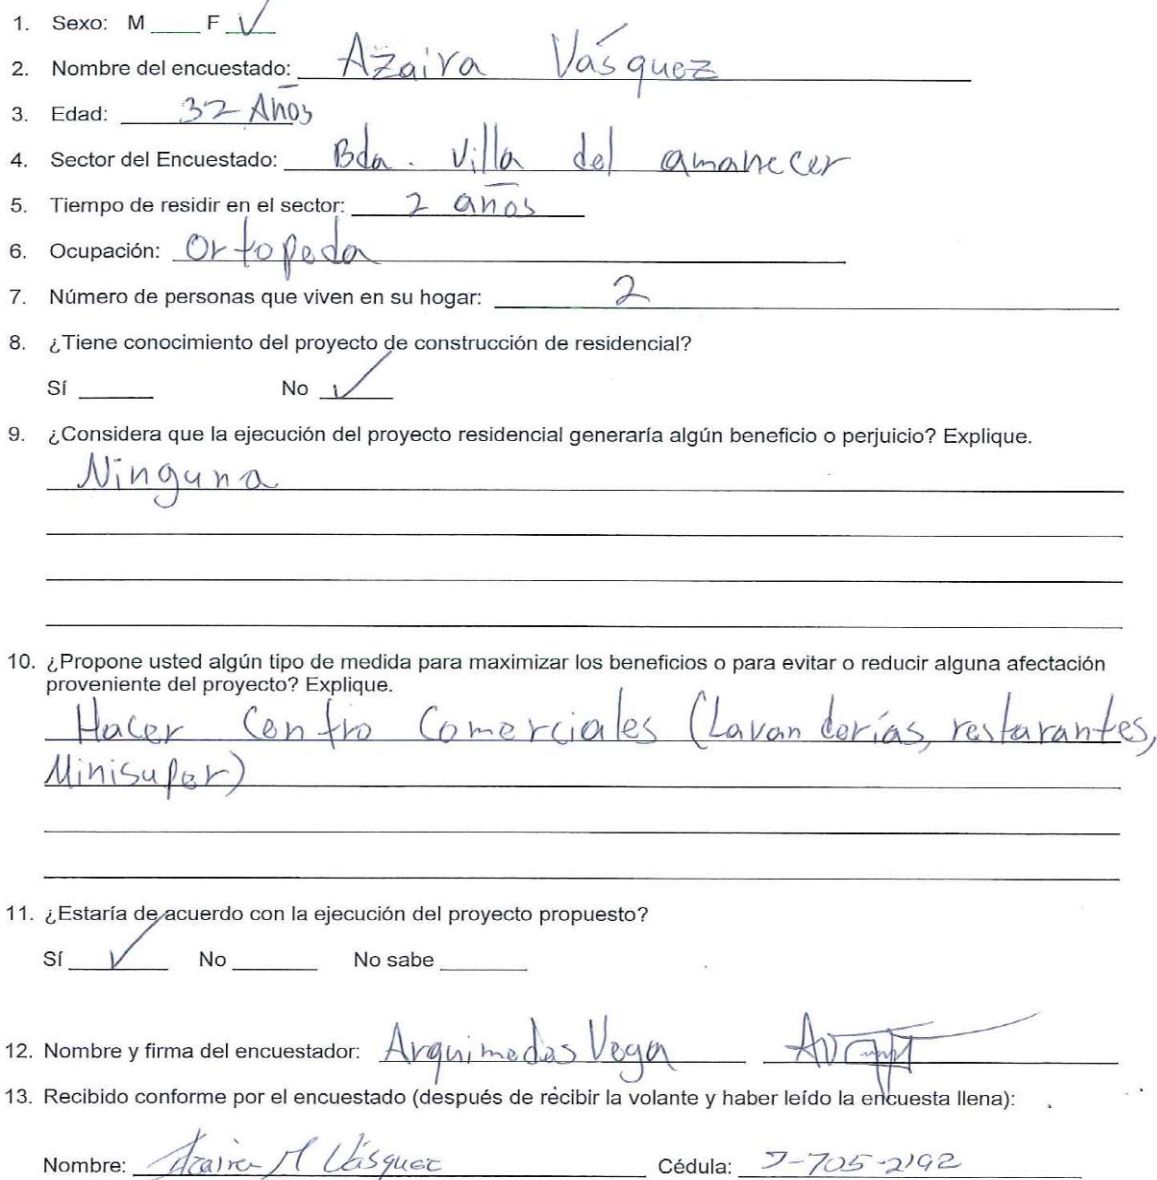 1. Sexo: M ____ F √
2. Nombre del encuestado: Azaira Vásquez
3. Edad: 32 Años
4. Sector del Encuestado: Bda. Villa del amanecer
5. Tiempo de residir en el sector: 2 años
6. Ocupación: Ortopeda
7. Número de personas que viven en su hogar: 2
8. ¿Tiene conocimiento del proyecto de construcción de residencial?
Sí ____ No √
9. ¿Considera que la ejecución del proyecto residencial generaría algún beneficio o perjuicio? Explique.
Ninguna
10. ¿Propone usted algún tipo de medida para maximizar los beneficios o para evitar o reducir alguna afectación
proveniente del proyecto? Explique.
Hacer Centro Comerciales (Lavanderías, restarantes,
Minisuper)
11. ¿Estaría de acuerdo con la ejecución del proyecto propuesto?
Sí √ No ____ No sabe ____
12. Nombre y firma del encuestador: Arquimedes Vega
13. Recibido conforme por el encuestado (después de recibir la volante y haber leído la encuesta llena):
Nombre: Azaira M Vásquez Cédula: -705-2192